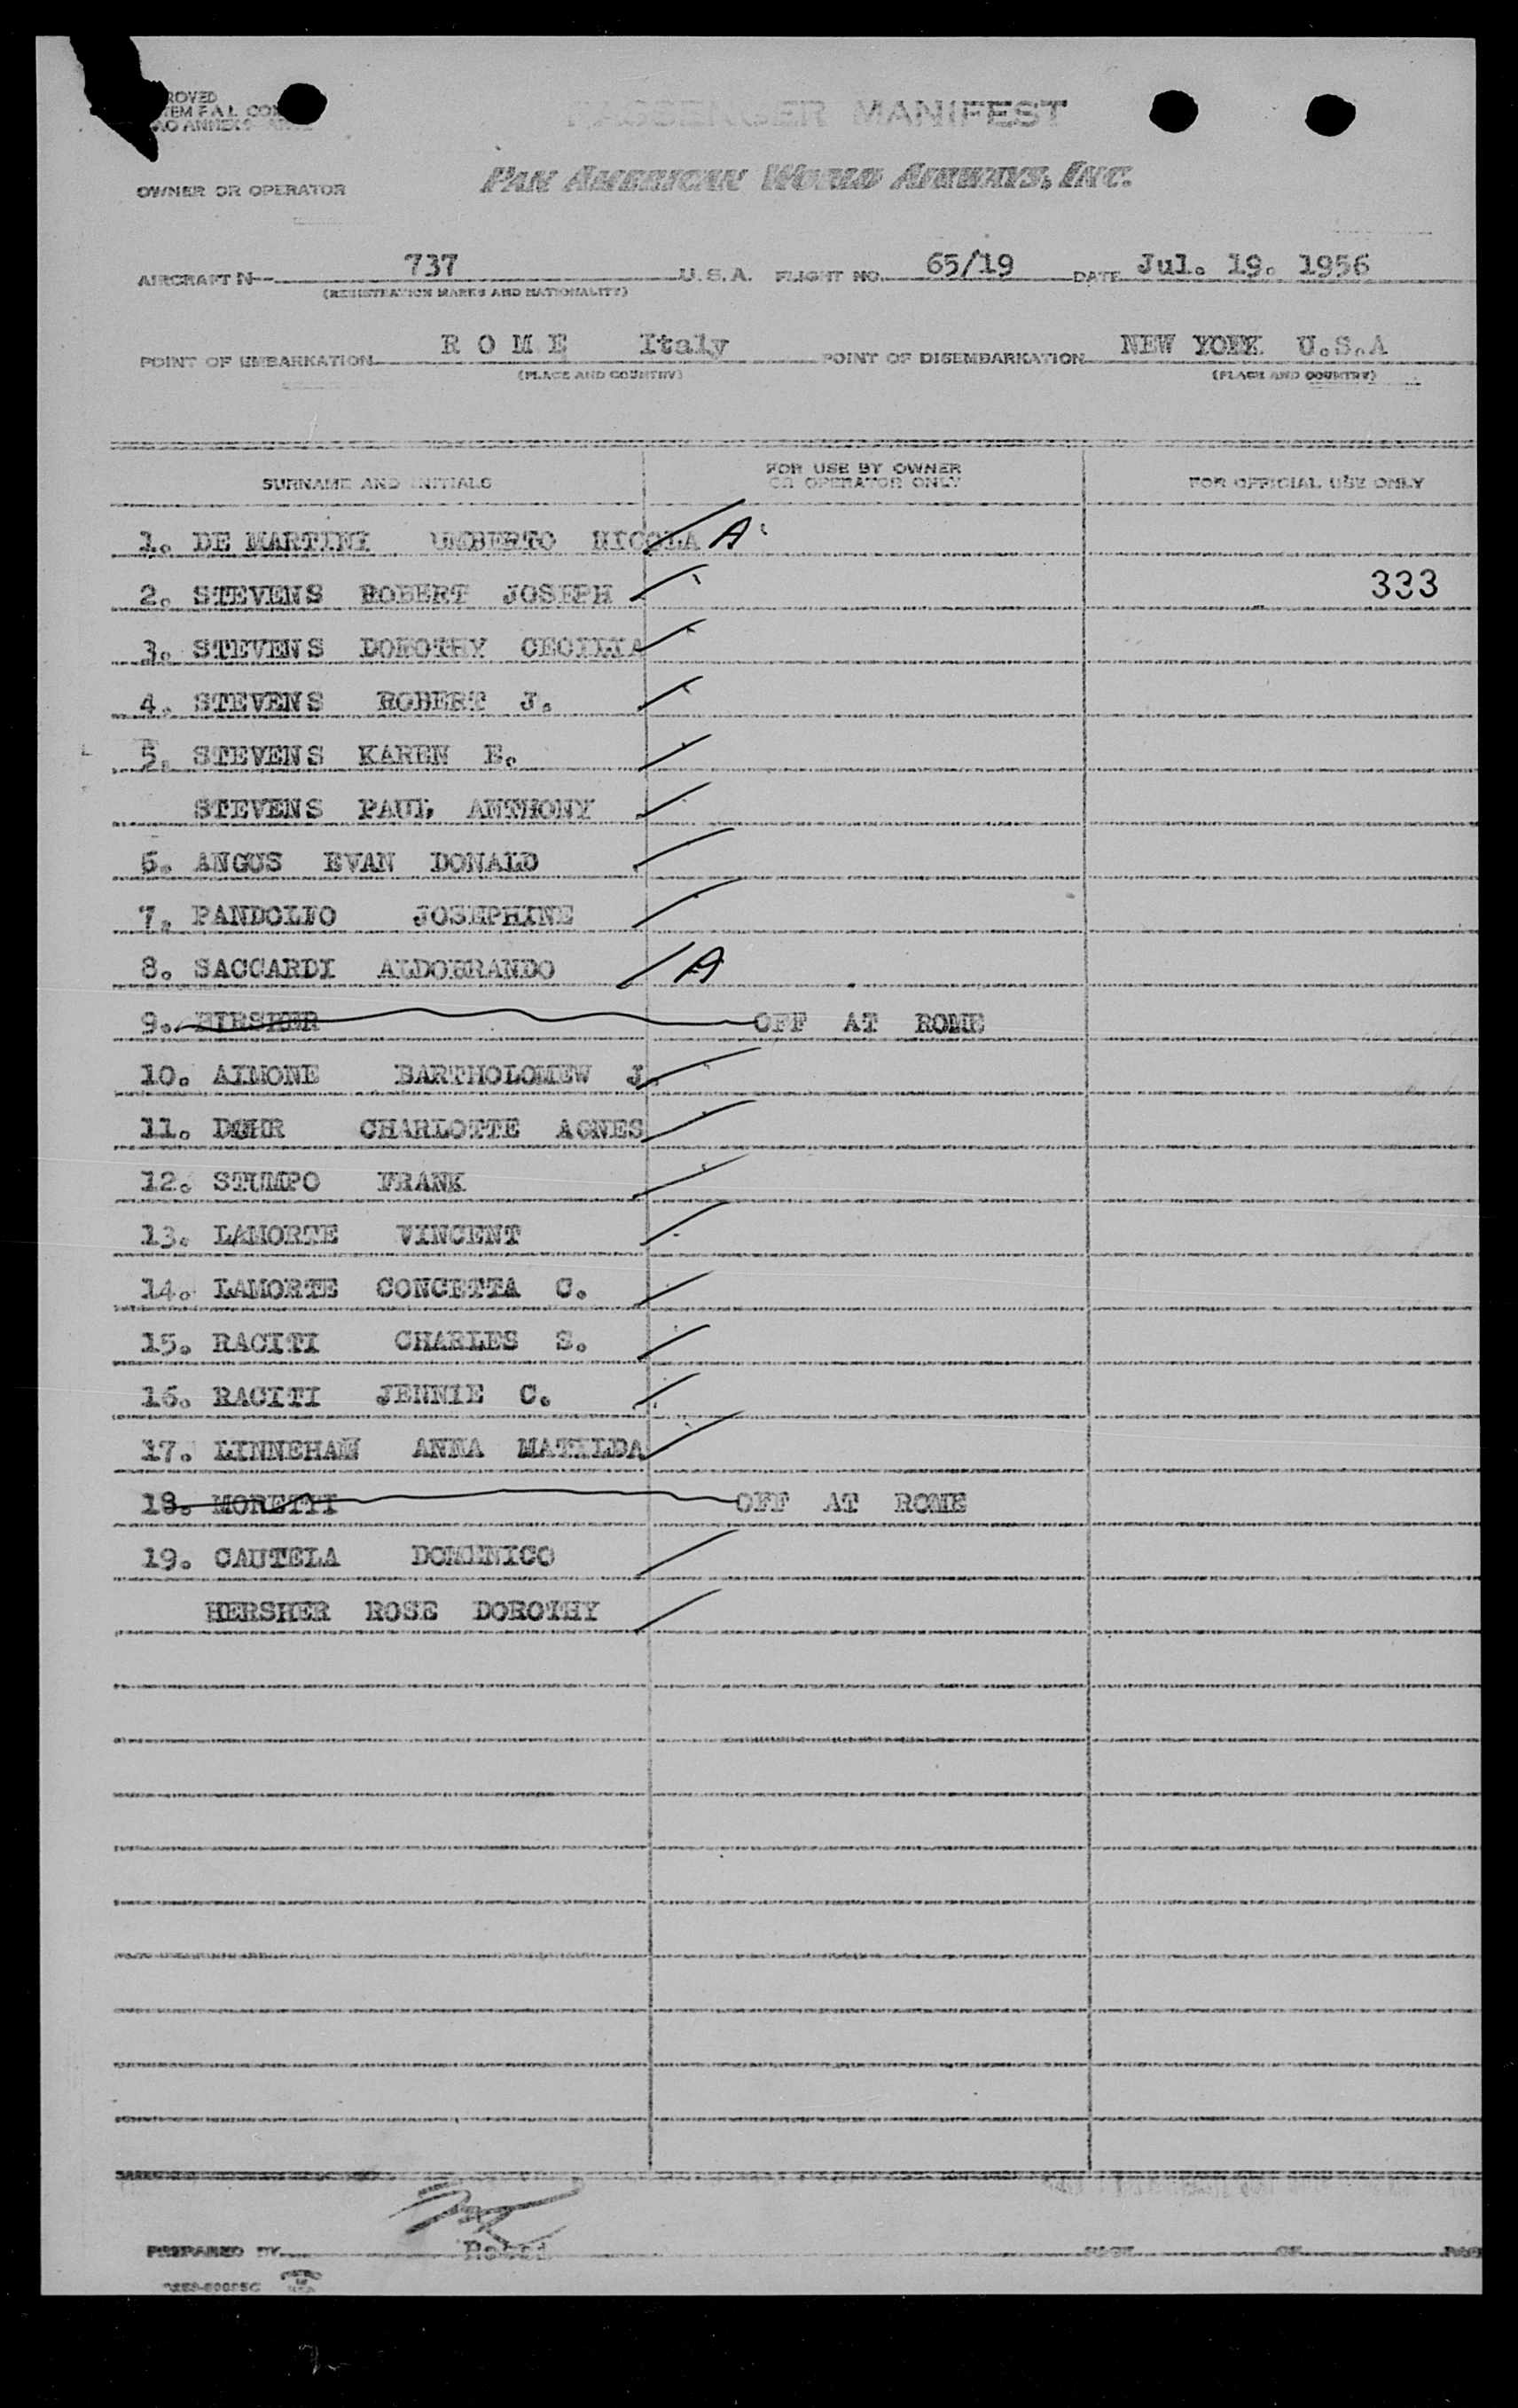 PASSENGER MANIFEST
OWNER OR OPERATOR PAN AMERICAN WORLD AIRWAYS, INC.
AIRCRAFT N 737 U.S.A. FLIGHT NO. 65/19 DATE Jul. 19. 1956
(REGISTRATION MARKS AND NATIONALITY)
POINT OF EMBARKATION R O M E Italy POINT OF DISEMBARKATION NEW YORK U.S.A
(PLACE AND COUNTRY) (PLACE AND COUNTRY)
SURNAME AND INITIALS FOR USE BY OWNER OR OPERATOR ONLY FOR OFFICIAL USE ONLY
1. DE MARTINI UMBERTO NICOLA A
2. STEVENS ROBERT JOSEPH 333
3. STEVENS DOROTHY CECILIA
4. STEVENS ROBERT J.
5. STEVENS KAREN E.
STEVENS PAUL ANTHONY
6. ANGUS EVAN DONALD
7. PANDOLFO JOSEPHINE
8. SACCARDI ALDOBRANDO A
9. OFF AT ROME
10. AIMONE BARTHOLOMEW J.
11. DOHR CHARLOTTE AGNES
12. STUMPO FRANK
13. LAMORTE VINCENT
14. LAMORTE CONCETTA C.
15. RACITI CHARLES S.
16. RACITI JENNIE C.
17. LINNEHAN ANNA MATILDA
18. MORETTI OFF AT ROME
19. CAUTELA DOMENICO
HERSHER ROSE DOROTHY
PREPARED BY PAGE OF